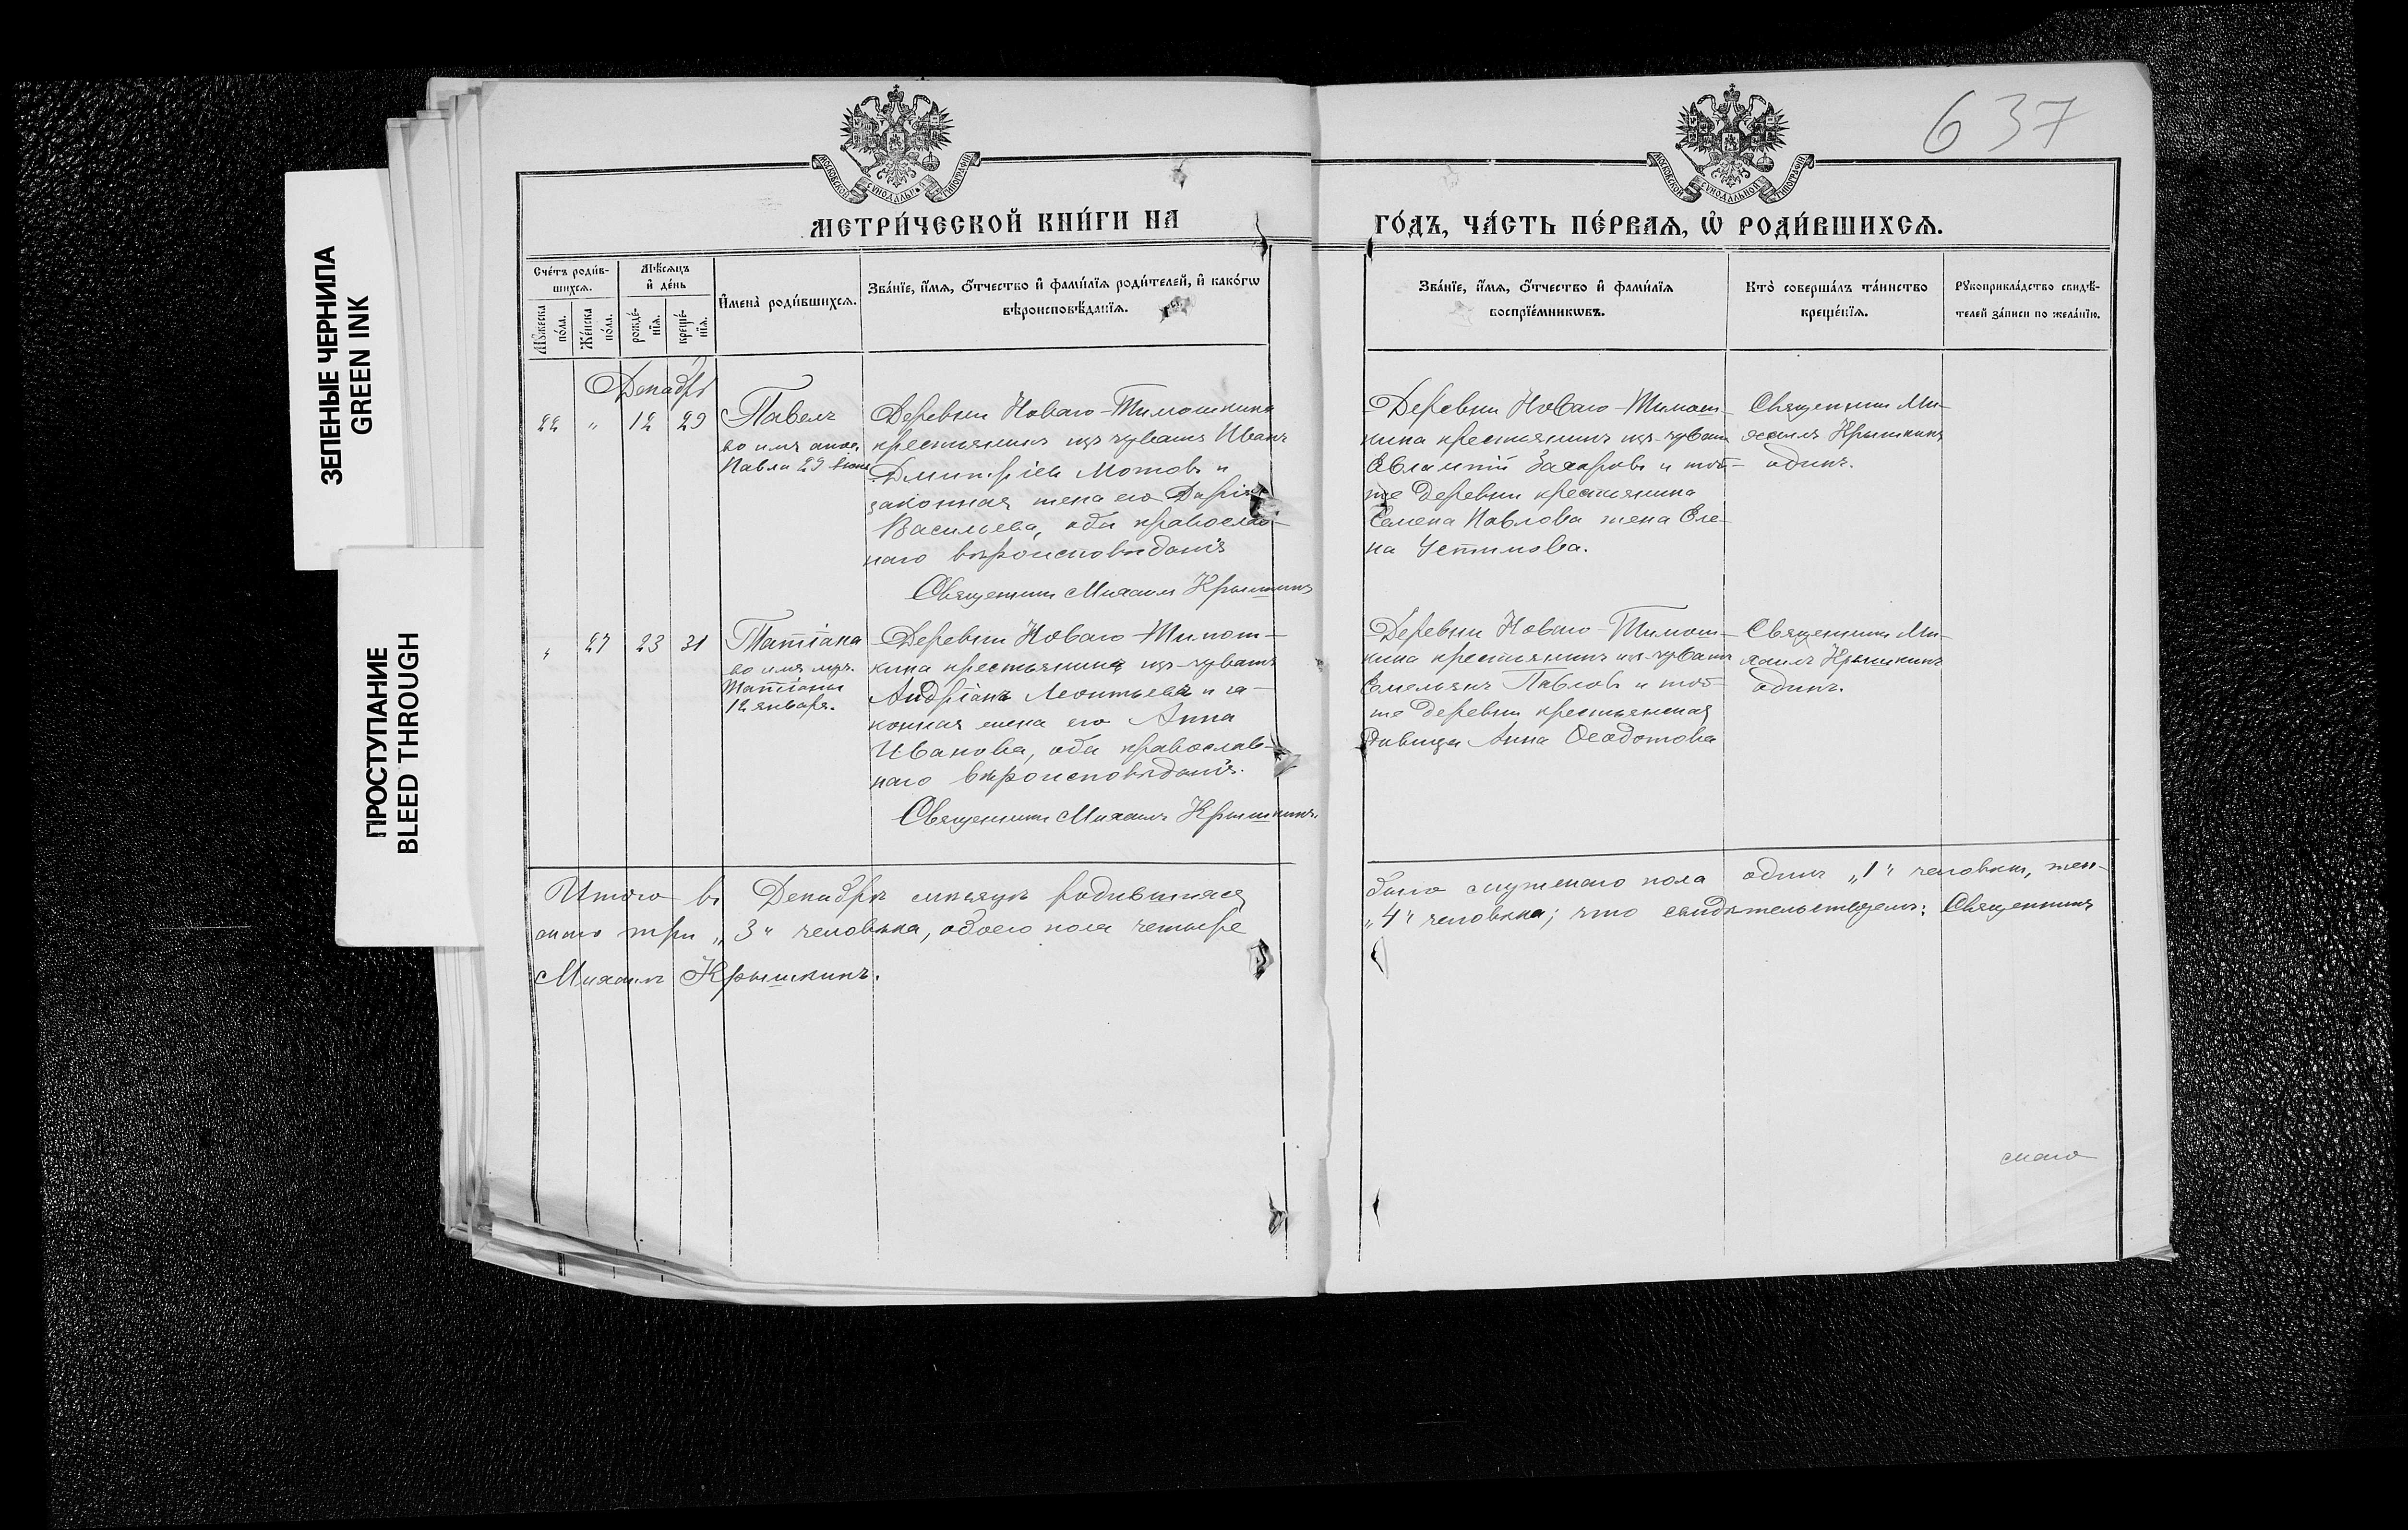 637
МОСКОВСКОЙ СѴНОДАЛЬНОЙ ТИПОГРАФІИ
МОСКОВСКОЙ СѴНОДАЛЬНОЙ ТИПОГРАФІИ
МЕТРИ́ЧЕСКОЙ КНИ́ГИ НА
ГО́ДЪ, ЧА́СТЬ ПЕ́РВАѦ, Ѡ҆ РОДИ́ВШИХСѦ.
ЗЕЛЕНЫЕ ЧЕРНИЛА
GREEN INK
ПРОСТУПАНИЕ
BLEED THROUGH
Сче́тъ роди́в-
шихсѧ.
Мꙋ́жеска
по́ла.
Же́нска
по́ла.
Мѣ́сѧцъ
и҆ де́нь
рожде́-
нїѧ.
креще́-
нїѧ.
И҆мена̀ роди́вшихсѧ.
Зва́нїе, и҆́мѧ, ѻ҆́тчество и҆ фами́лїѧ роди́телей, и҆ како́гѡ
вѣроисповѣ́данїѧ.
Зва́нїе, и҆́мѧ, ѻ҆́тчество и҆ фами́лїѧ
воспрїе́мникѡвъ.
Кто̀ соверша́лъ та́инство
креще́нїѧ.
Рꙋкоприкла́дство свидѣ́-
телей за́писи по жела́нїю.
Декабрь
22 " 12 29
Павелъ
во имя апос.
Павла 29 Іюня
Деревни Новаго-Тимошкина
крестьянинъ изъ чувашъ Иванъ
Дмитріевъ Мотовъ и
законная жена его Дарія
Васильева, оба православ-
наго вѣроисповѣданія
Священникъ Михаилъ Крышкинъ
Деревни Новаго-Тимош-
кина крестьянинъ изъ чувашъ
Евлампій Захаровъ и той-
же деревни крестьянина
Семена Павлова жена Еле-
на Устимова.
Священникъ Ми-
хаилъ Крышкинъ
одинъ.
" 27 23 31
Татіана
во имя муч.
Татіаны
12 января.
Деревни Новаго-Тимош-
кина крестьянинъ изъ чувашъ
Андріанъ Леонтьевъ и за-
конная жена его Анна
Иванова, оба православ-
наго вѣроисповѣданія.
Священникъ Михаилъ Крышкинъ.
Деревни Новаго-Тимош-
кина крестьянинъ изъ чувашъ
Емельянъ Павловъ и той-
же деревни крестьянская
дѣвица Анна Ѳеодотова
Священникъ Ми-
хаилъ Крышкинъ
одинъ.
Итого въ Декабрѣ мѣсяцѣ родившихся было мужескаго пола одинъ „1" человѣкъ, жен-
скаго три „3" человѣка, обоего пола четыре „4" человѣка; что свидѣтельствуемъ: Священникъ
Михаилъ Крышкинъ.